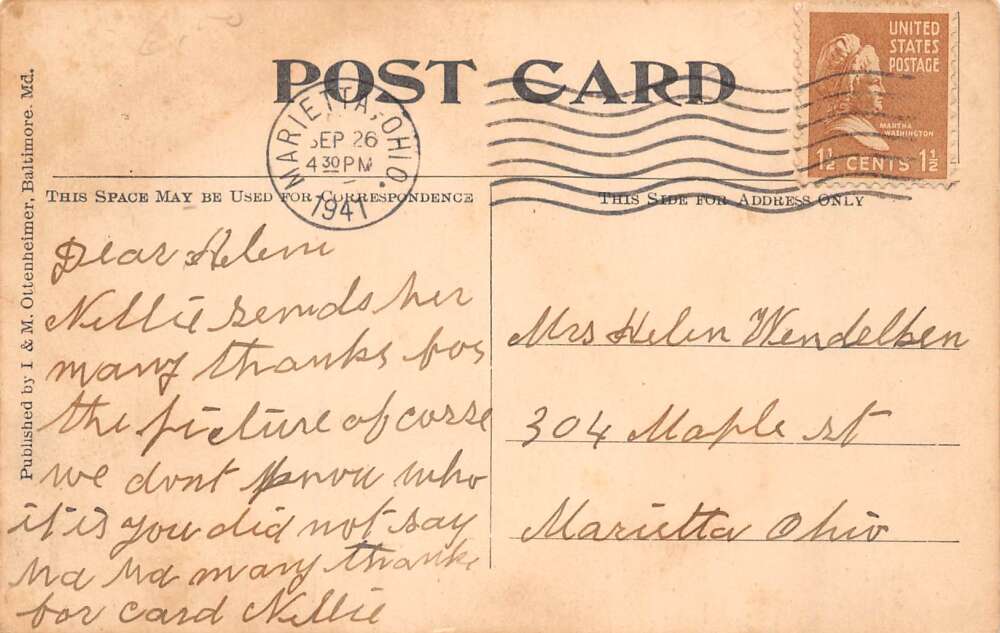 POST CARD
UNITED
STATES
POSTAGE
MARTHA
WASHINGTON
1½ CENTS 1½
MARIETTA, OHIO.
SEP 26
4 30 PM
1941
THIS SPACE MAY BE USED FOR CORRESPONDENCE
THIS SIDE FOR ADDRESS ONLY
Published by I & M. Ottenheimer, Baltimore. Md.
Dear Helen
Nellie sends her
many thanks for
the picture of corse
we dont know who
it is you did not say
Ha Ha many thanks
for card Nellie
Mrs Helen Wendelken
304 Maple st
Marietta Ohio